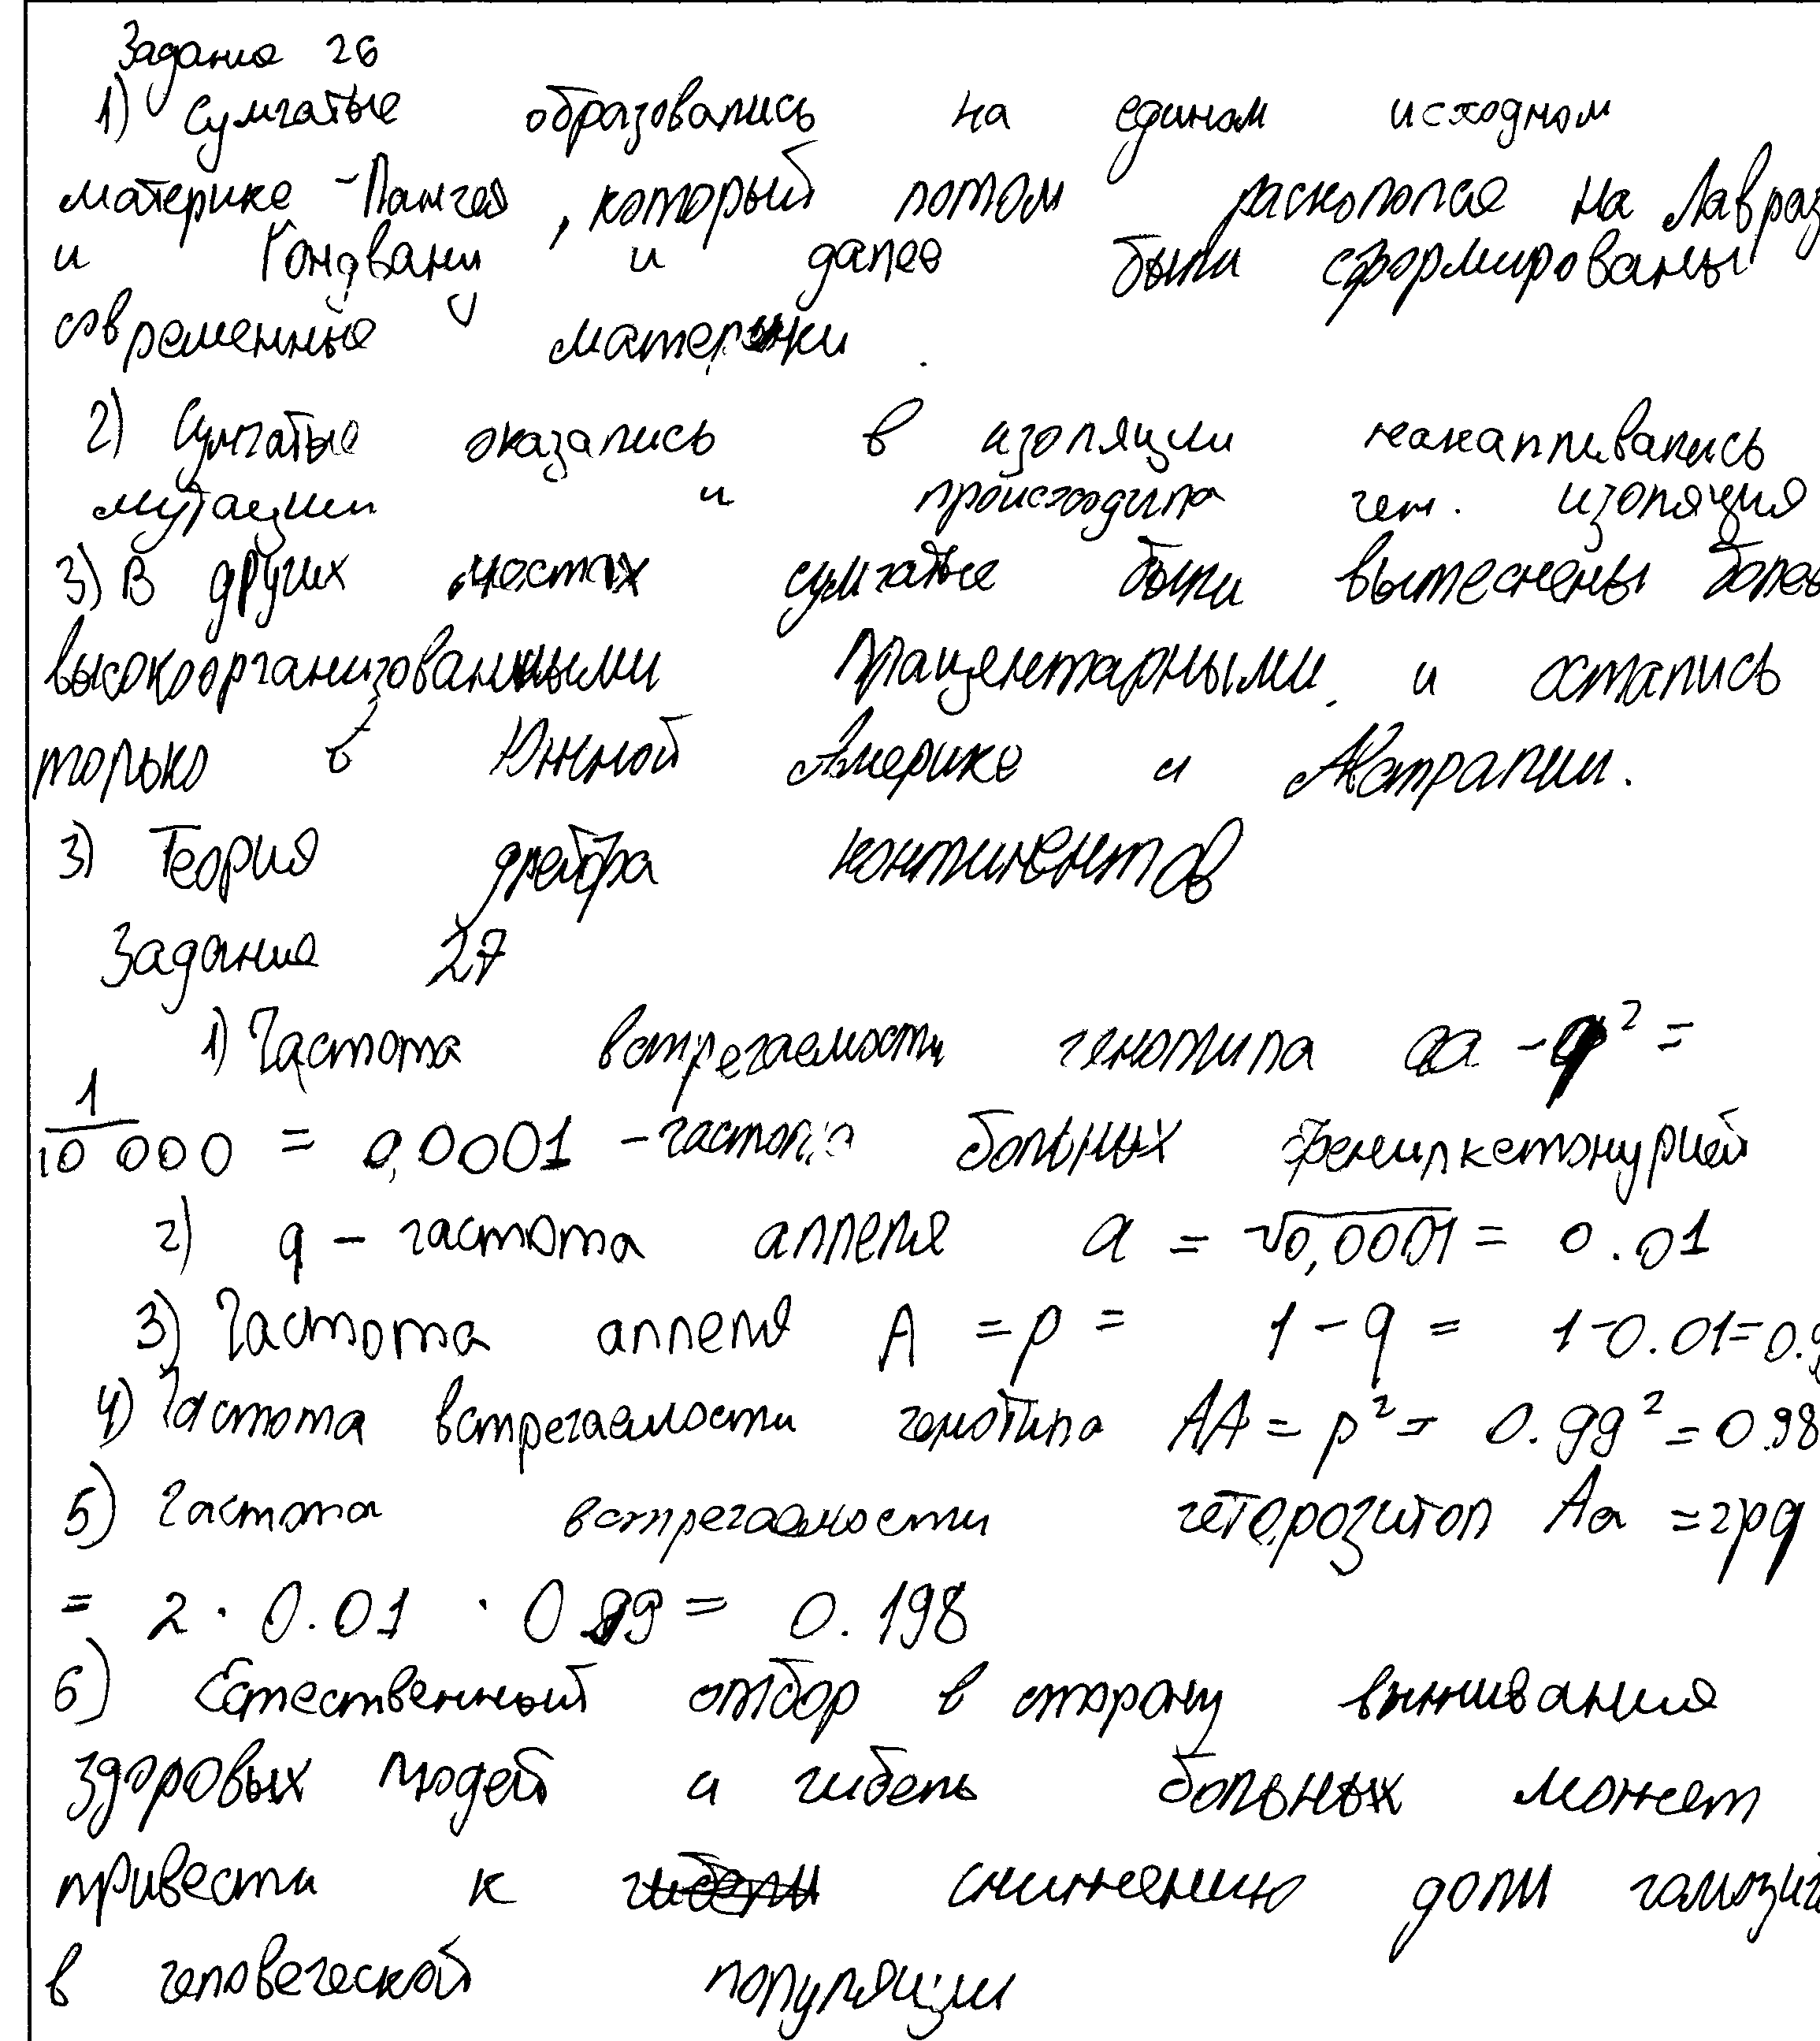 Задание 26
1) Сумчатые образовались на едином исходном
материке - Пангея, который потом раскололся на Лавраз
и Гондвану и далее были сформированы
современные материки.
2) Сумчатые оказались в изоляции накапливались
мутации и происходила ген. изоляция
3) В других местах сумчатые были вытеснены более
высокоорганизованными плацентарными и остались
только в Южной Америке и Австралии.
3) Теория дрейфа континентов
Задание 27
1) Частота встречаемости генотипа aa - q² =
1/10 000 = 0,0001 - частота больных фенилкетонурией
2) q - частота аллеля a = √0,0001 = 0.01
3) Частота аллеля A = p = 1 - q = 1-0.01=0.9
4) Частота встречаемости генотипа AA = p² = 0.99² = 0.98
5) Частота встречаемости гетерозигот Aa = 2pq
= 2 · 0.01 · 0.99 = 0.198
6) Естественный отбор в сторону выживания
здоровых людей и гибель больных может
привести к гибели снижению доли гомозиг
в человеческой популяции